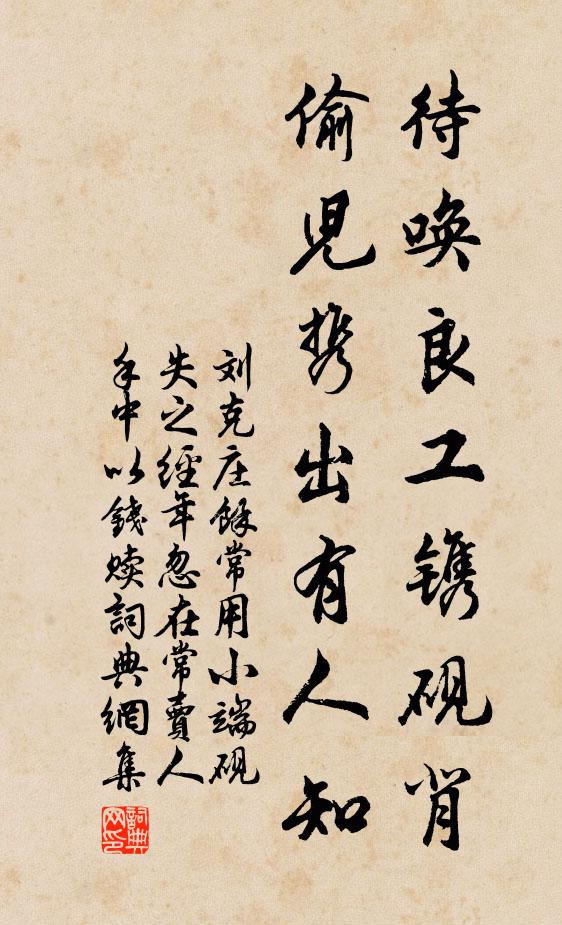 待唤良工镌砚背
偷兒携出有人知
刘克庄餘常用小端砚
失之經年忽在常賣人
手中以錢贖詞典網集
詞典网印